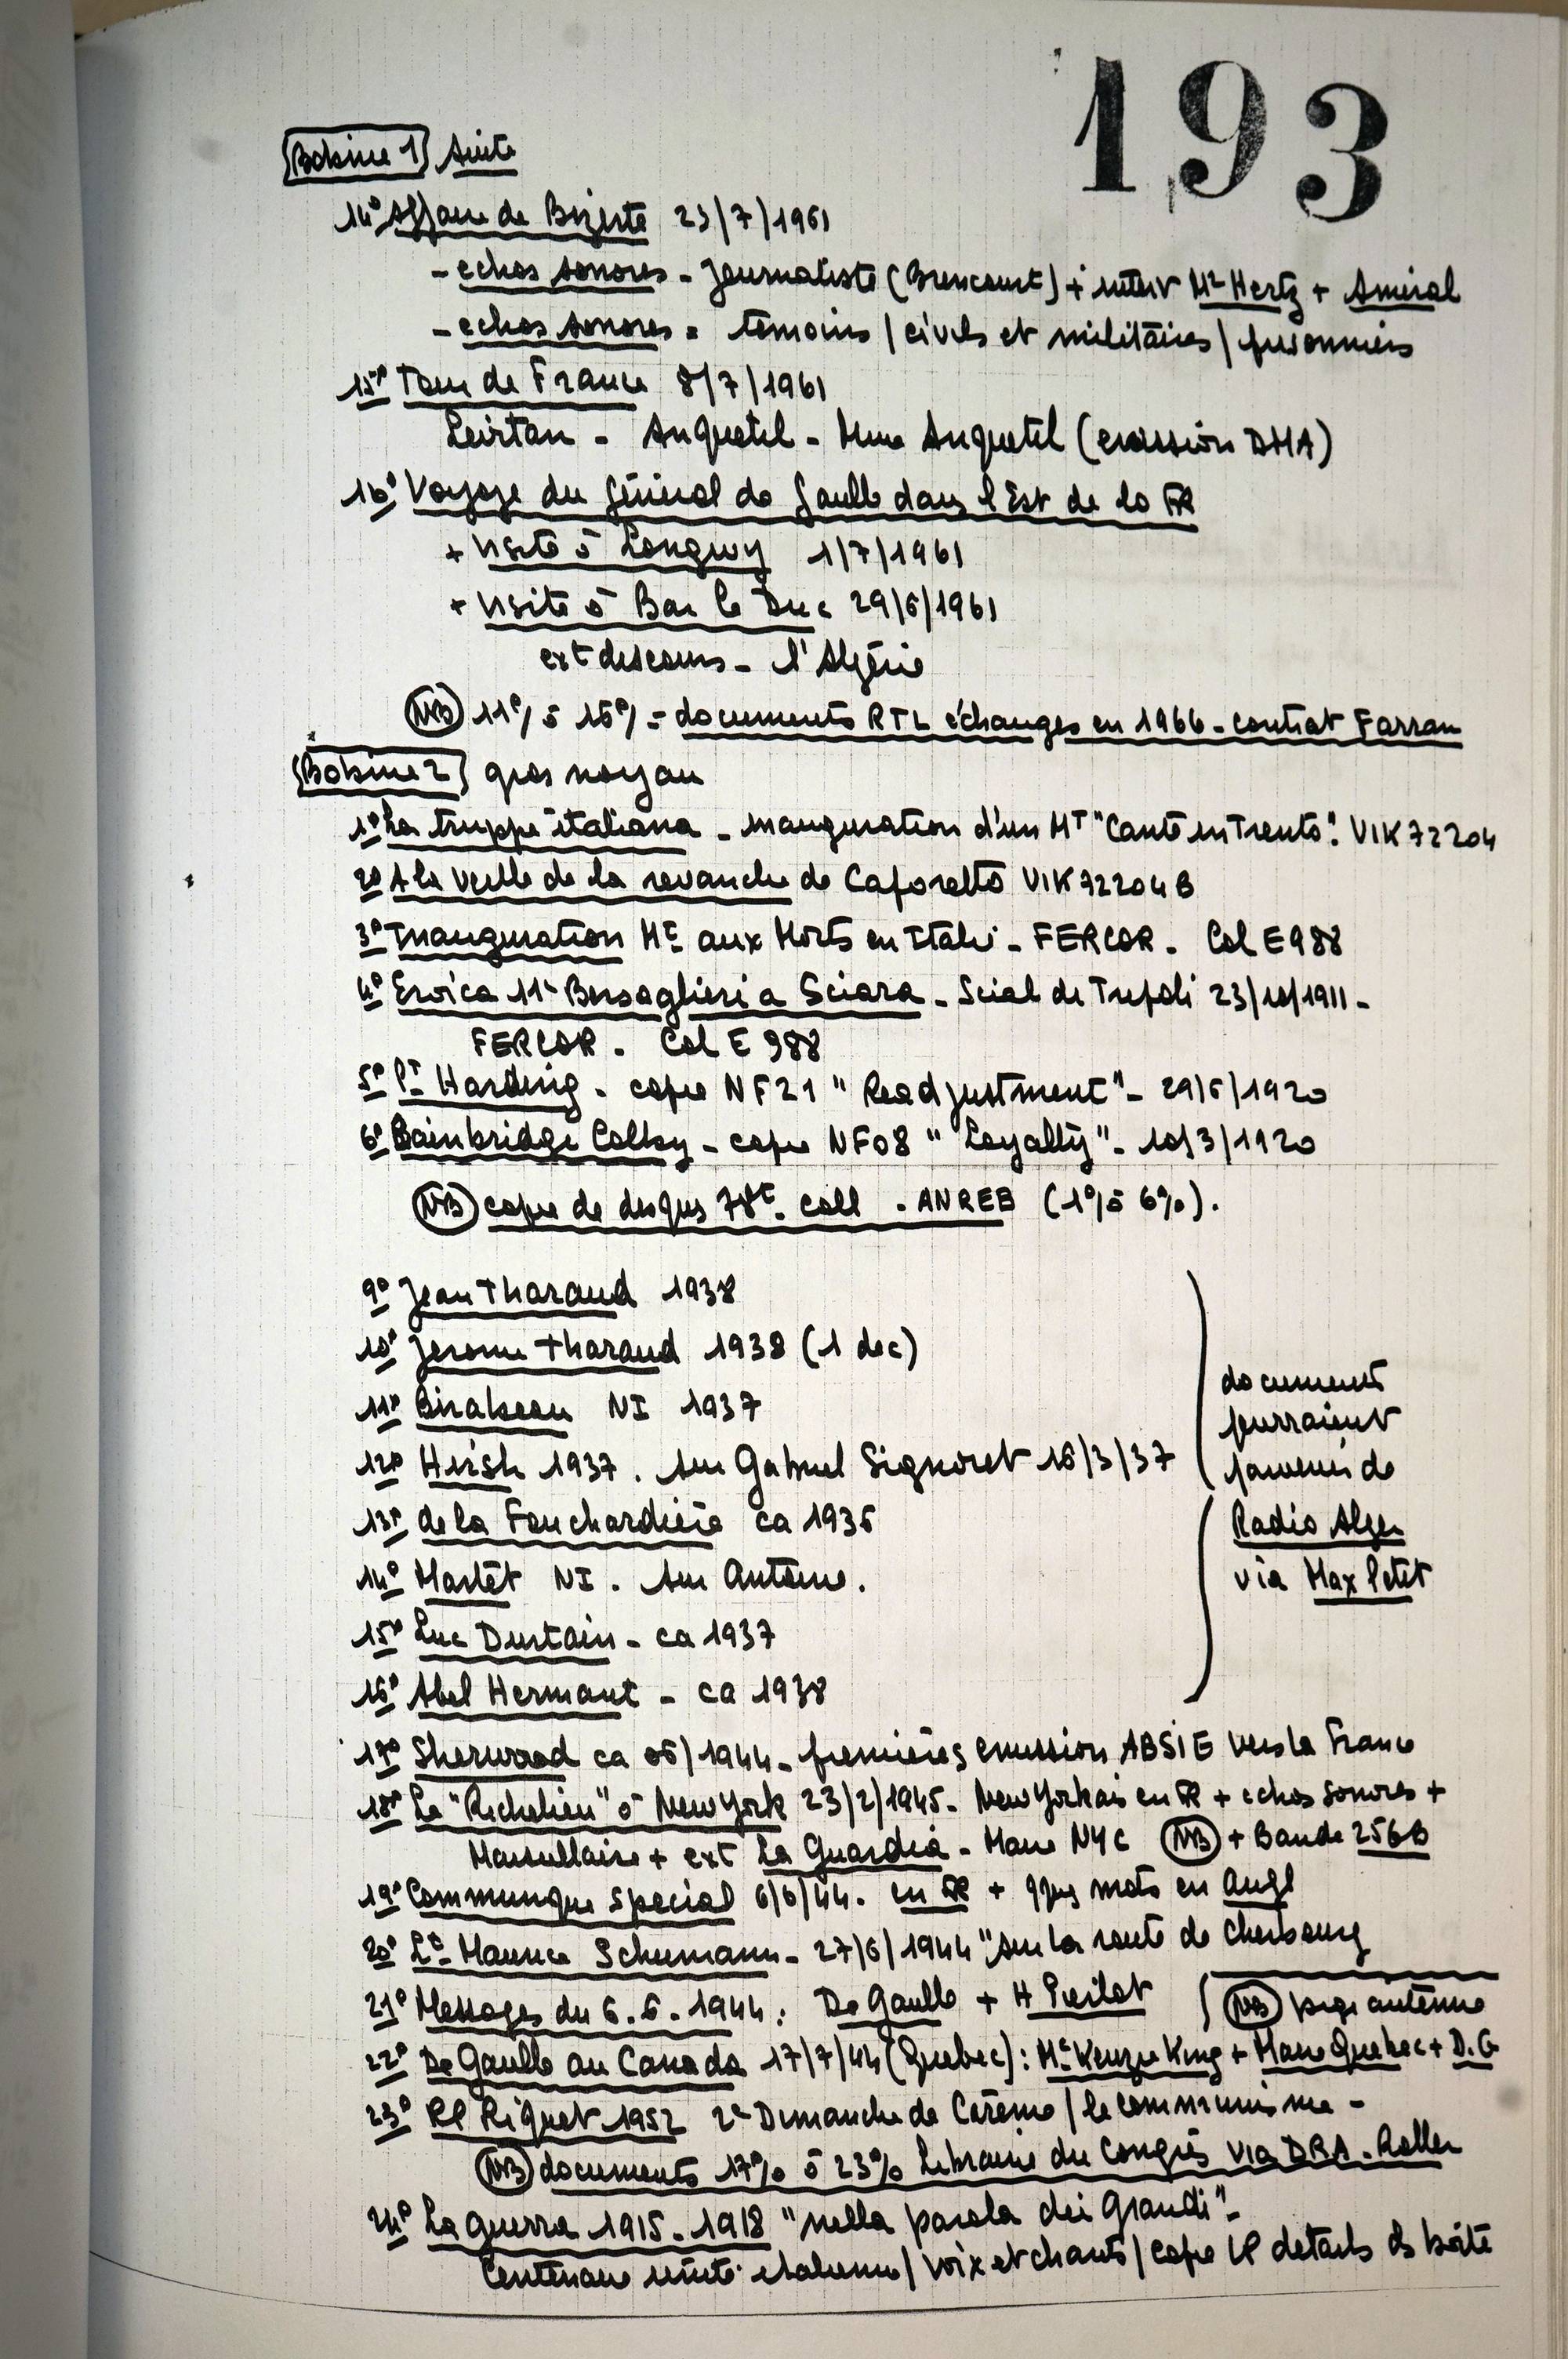 193
Bobine 1 suite
14° Affaire de Bizerte 23/7/1961
- echos sonores - journaliste (Brencourt) + interv Mr Hertz + Amiral
- echos sonores = témoins / civils et militaires / prisonniers
15° Tour de France 8/7/1961
Anquetil - Mme Anquetil (emission DMA)
16° Voyage du Général de Gaulle dans l'Est de la FR
+ visite à Longwy 1/7/1961
+ visite à Bar le Duc 29/6/1961
ext discours - l'Algérie
NB 11°/ à 16°/ = documents RTL échanges en 1966 - contrat Farran
Bobine 2 gros noyau
1° La truppe italiana - inauguration d'un MT "Cante in Trento". VIK 72204
2° A la veille de la revanche de Caporetto VIK 72204 B
3° Inauguration Mt aux Morts en Italie - FERCOR. Col E 988
4° Eroica 11e Bersaglieri a Sciara - Sciat de Tripoli 23/10/1911 -
FERCOR. Col E 988
5° Pt Harding - copie NF21 "Readjustment" - 29/6/1920
6° Bainbridge Colby - copie NF08 "Loyalty" - 10/3/1920
NB copie de disques 78t. coll. ANREB (1°/ à 6°/).
9° Jean Tharaud 1938
10° Jerome Tharaud 1938 (1 dec)
11° Birabeau NI 1937
12° Hirsh 1937. sur Gabriel Signoret 16/3/37
13° de la Fouchardière ca 1936
14° Martet NI. sur Antoine.
15° Luc Durtain - ca 1937
16° Abel Hermant - ca 1938
documents
pourraient
provenir de
Radio Alger
via Max Petit
17° Sherwood ca 06/1944 - premières emission ABSIE vers la France
18° Le "Richelieu" à New York 23/2/1945 - New Yorkais en FR + echos sonores +
Marseillaise + ext La Guardia - Maire NYC NB + Bande 256B
19° Communique special 6/6/44. en FR + qques mots en Angl
20° Lt Maurice Schumann - 27/6/1944 "sur la route de Cherbourg
21° Messages du 6.6.1944: De Gaulle + H Pierlot NB pige antenne
22° De Gaulle au Canada 17/7/44 (Quebec): Mc Kenzie King + Maire Quebec + D.G
23° RP Riquet 1952 2e Dimanche de Carême / le communisme -
NB documents 17°/ à 23°/ Librairie du Congrès via DRA. Roller
24° La guerra 1915-1918 "nella parola dei grandi" -
Centenaire unité italienne / voix et chants / copie LP details ds boite